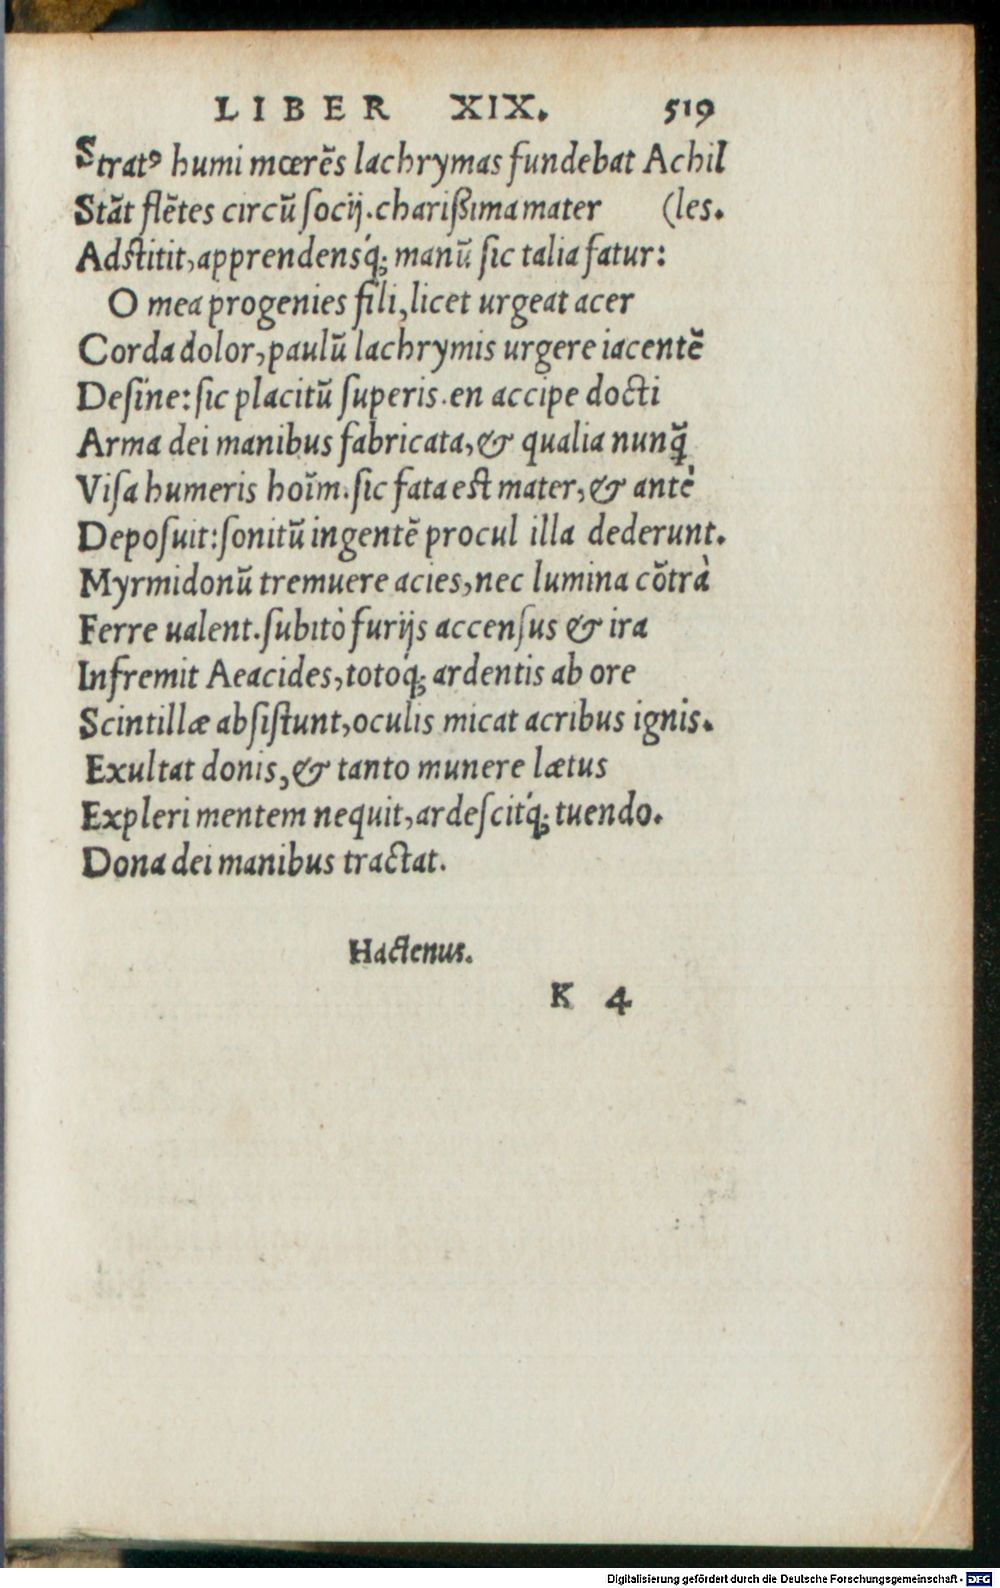 LIBER XIX. 519
Stratꝰ humi mœrẽs lachrymas fundebat Achil
Stãt flẽtes circũ ſocij. charißima mater (les.
Adſtitit, apprendensq́; manũ ſic talia fatur:
O mea progenies fili, licet urgeat acer
Corda dolor, paulũ lachrymis urgere iacentẽ
Deſine: ſic placitũ ſuperis. en accipe docti
Arma dei manibus fabricata, & qualia nunq̃
Viſa humeris hoĩm. ſic fata eſt mater, & antè
Depoſuit: ſonitũ ingentẽ procul illa dederunt.
Myrmidonũ tremuere acies, nec lumina cõtrà
Ferre ualent. ſubitò furijs accenſus & ira
Infremit Aeacides, totoq́; ardentis ab ore
Scintillæ abſiſtunt, oculis micat acribus ignis.
Exultat donis, & tanto munere lætus
Expleri mentem nequit, ardeſcitq́; tuendo.
Dona dei manibus tractat.
Hactenus.
K 4
Digitalisierung gefördert durch die Deutsche Forschungsgemeinschaft - DFG